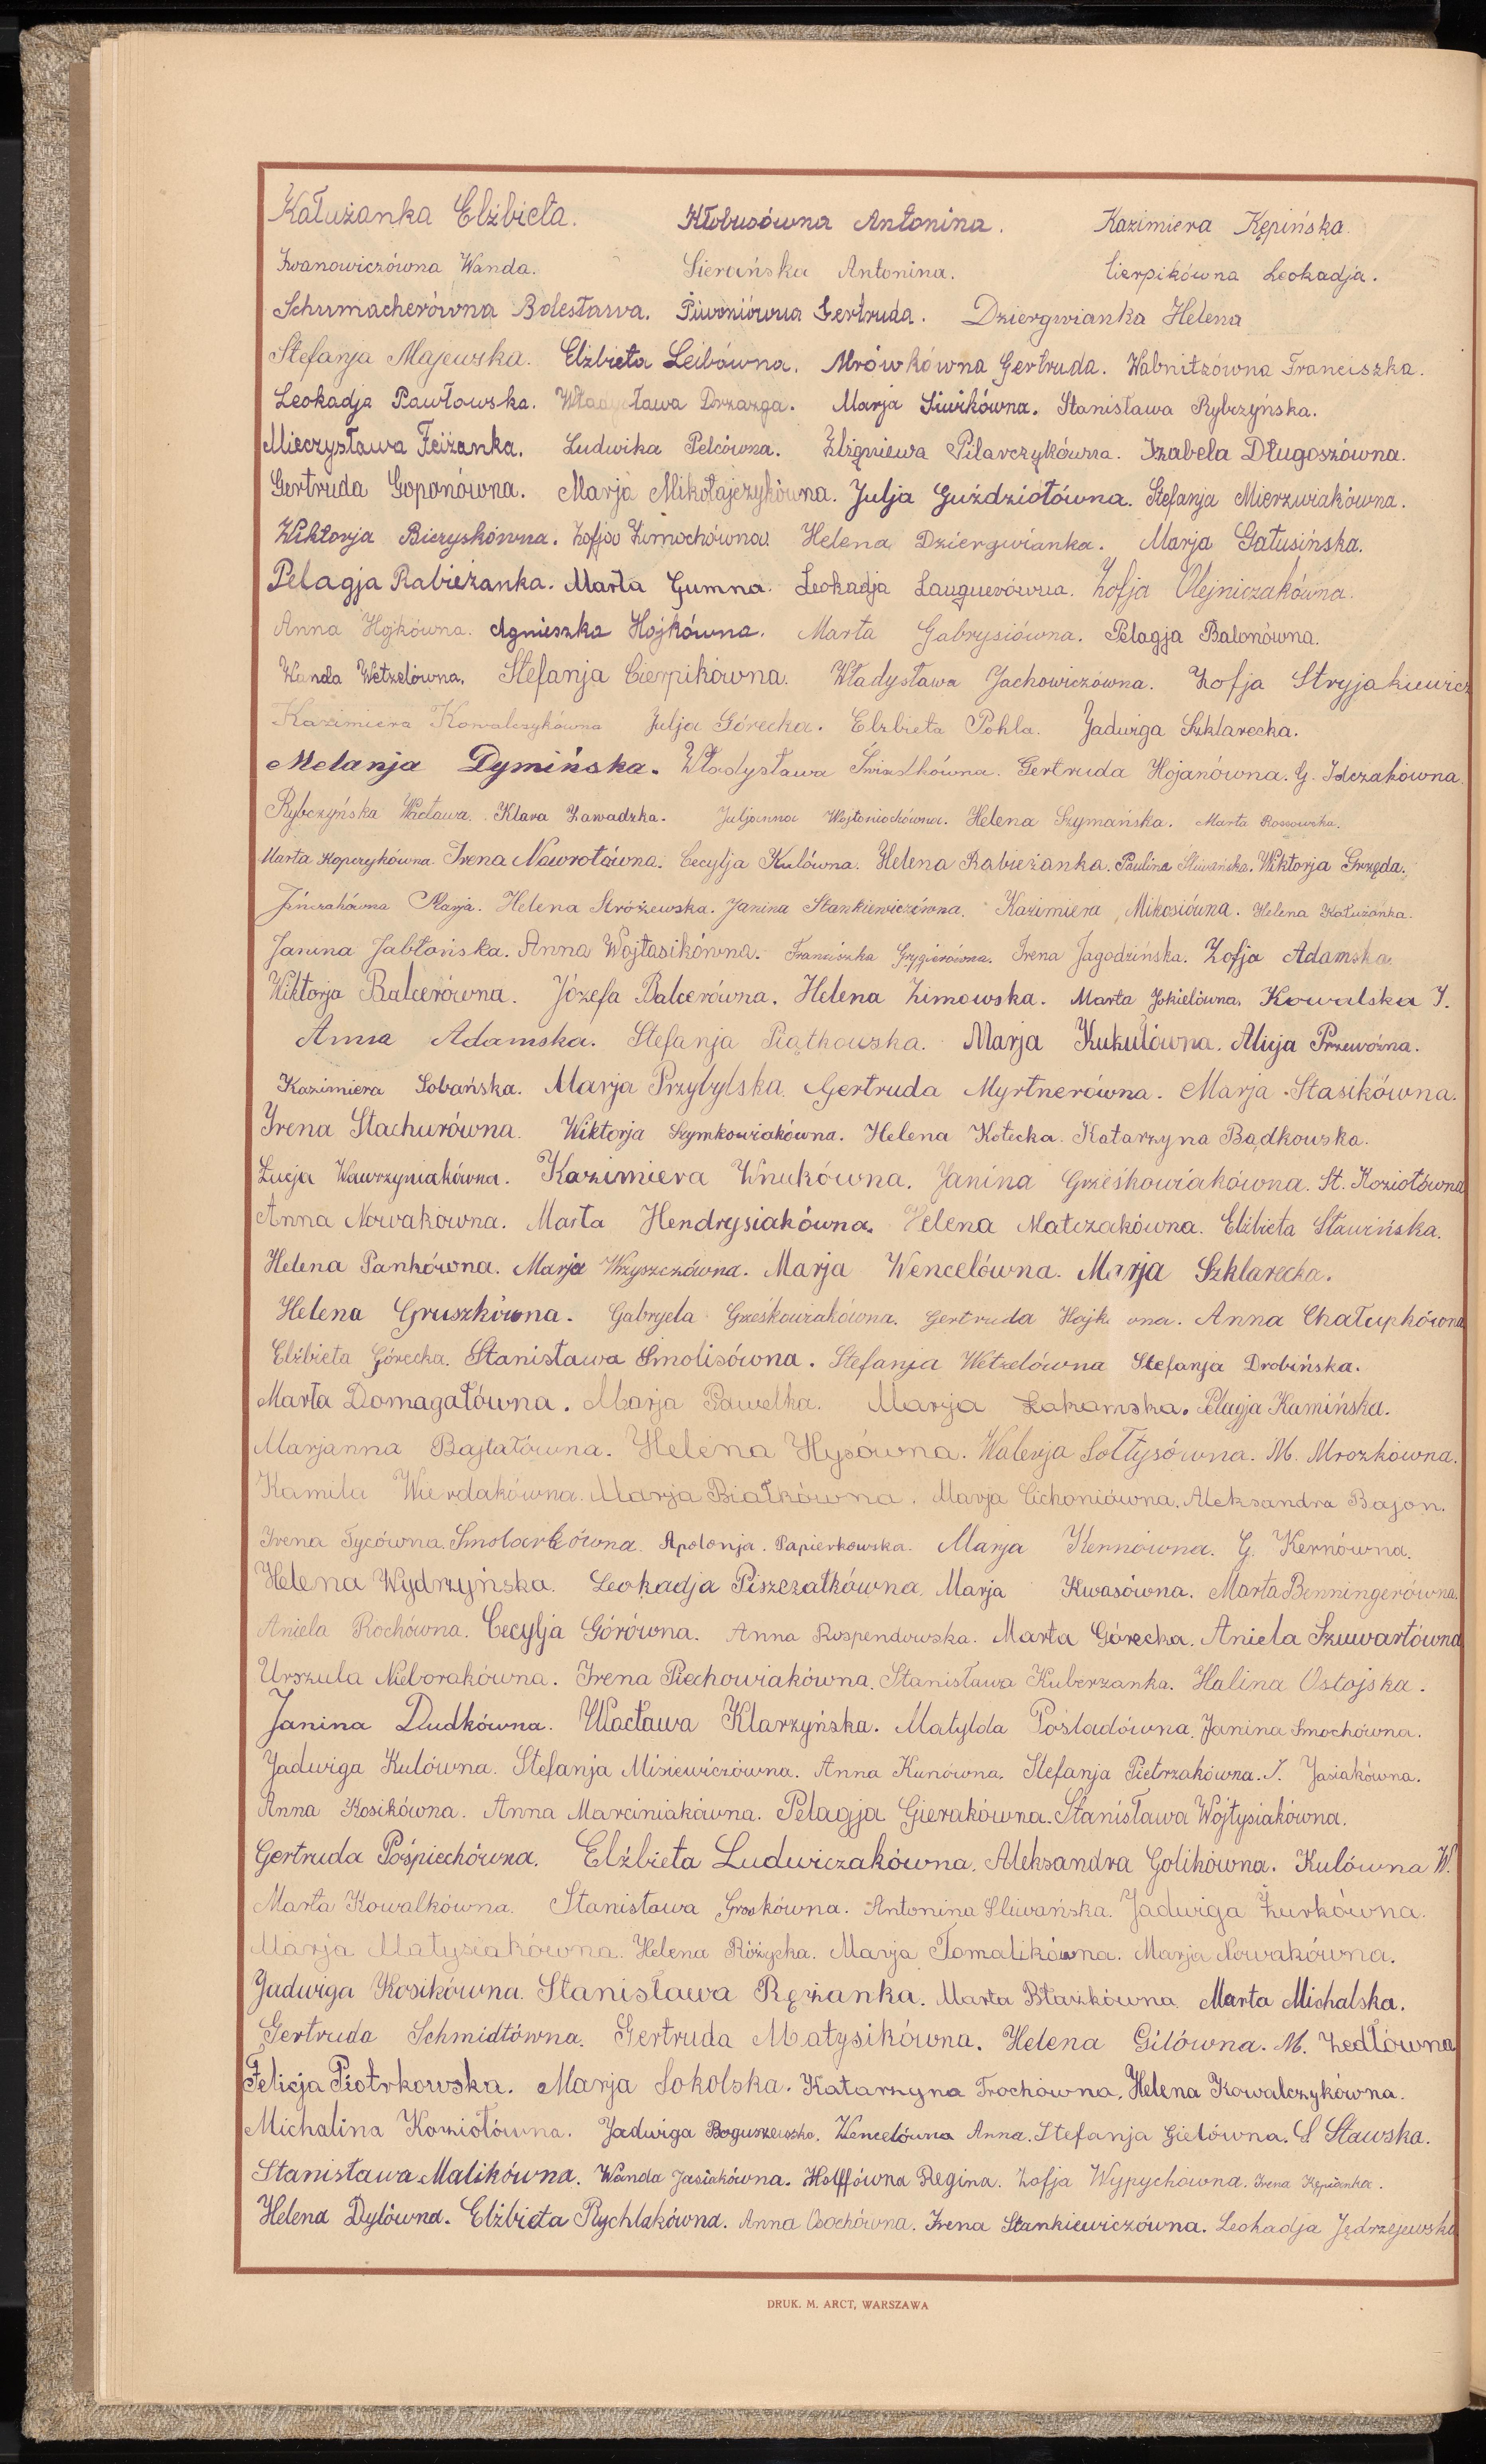 Kałużanka Elżbieta. Kłobusówna Antonina. Kazimiera Kępińska.
Iwanowiczówna Wanda. Sierańska Antonina. Cierpikówna Leokadja.
Schumacherówna Bolesława. Piwoniówna Gertruda. Dziergwianka Helena
Stefanja Majewska. Elżbieta Leibówna. Mrówkówna Gertruda. Wabnitzówna Franciszka.
Leokadja Pawłowska. Władysława Drzazga. Marja Siwikówna. Stanisława Rybczyńska.
Mieczysława Feiżanka. Ludwika Pelcówna. Zbigniewa Pilarczykówna. Izabela Długoszówna.
Gertruda Goponówna. Marja Mikołajczykówna. Julja Guździołówna. Stefanja Mierzwiakówna.
Wiktorja Biczyskówna. Zofja Zimochówna. Helena Dziergwianka. Marja Gałusińska.
Pelagja Rabieżanka. Marta Gumna. Leokadja Langnerówna. Zofja Olejniczakówna.
Anna Hojkówna. Agnieszka Hojkówna. Marta Gabrysiówna. Pelagja Balonówna.
Wanda Wetzelówna. Stefanja Cierpikówna. Władysława Jachowiczówna. Zofja Stryjakiewicz
Kazimiera Kowalczykówna Julja Górecka. Elżbieta Pohla. Jadwiga Szklarecka.
Melanja Dymińska. Władysława Świadkówna. Gertruda Hojanówna. G. Idczakówna.
Rybczyńska Wacława. Klara Zawadzka. Juljanna Wojtoniochówna. Helena Szymańska. Marta Rossowska.
Marta Kopczykówna. Irena Nawrotówna. Cecylja Kulówna. Helena Rabieżanka. Paulina Śliwańska. Wiktorja Grzęda.
Jończakówna Marja. Helena Stróżewska. Janina Stankiewiczówna. Kazimiera Mikosiówna. Helena Kałużanka.
Janina Jabłońska. Anna Wojtasikówna. Franciszka Grygierówna. Irena Jagodzińska. Zofja Adamska.
Wiktorja Balcerówna. Józefa Balcerówna. Helena Zimowska. Marta Jokielówna. Kowalska I.
Anna Adamska. Stefanja Piątkowska. Marja Kukułówna. Alicja Przewoźna.
Kazimiera Sobańska. Marja Przybylska. Gertruda Myrtnerówna. Marja Stasikówna.
Irena Stachurówna. Wiktorja Szymkowiakówna. Helena Kotecka. Katarzyna Bądkowska.
Łucja Wawrzyniakówna. Kazimiera Wnukówna. Janina Grześkowiakówna. St. Koziołówna
Anna Nowakówna. Marta Hendrysiakówna. Helena Matczakówna. Elżbieta Sławińska.
Helena Pankówna. Marja Wrzyszczówna. Marja Wencelówna. Marja Szklarecka.
Helena Gruszkówna. Gabryela Grześkowiakówna. Gertruda Hojkówna. Anna Chałupkówna
Elżbieta Górecka. Stanisława Smolisówna. Stefanja Wetzelówna Stefanja Drobińska.
Marta Domagałówna. Marja Pawelka. Marja Łakomska. Pelagja Kamińska.
Marjanna Bajtałówna. Helena Hysówna. Walerja Sołtysówna. M. Mrozkówna.
Kamila Wierdakówna. Marja Białkówna. Marja Cichoniówna. Aleksandra Bajon.
Irena Tycówna. Smolarkówna. Apolonja. Papierkowska. Marja Kernówna. G. Kernówna.
Helena Wydrzyńska. Leokadja Piszczałkówna. Marja Kwasówna. Marta Benningerówna.
Aniela Rochówna. Cecylja Górówna. Anna Rospendowska. Marta Górecka. Aniela Szuwartówna
Urszula Nieborakówna. Irena Piechowiakówna. Stanisława Kuberzanka. Halina Ostojska.
Janina Dudkówna. Wacława Klarzyńska. Matylda Pośladówna. Janina Smochówna.
Jadwiga Kulówna. Stefanja Misiewiczówna. Anna Kunówna. Stefanja Pietrzakówna. I. Jasiakówna.
Anna Kosikówna. Anna Marciniakówna. Pelagja Gierakówna. Stanisława Wojtysiakówna.
Gertruda Pośpiechówna. Elżbieta Ludwiczakówna. Aleksandra Golikówna. Kulówna W.
Marta Kowalkówna. Stanisława Groskówna. Antonina Śliwańska. Jadwiga Żurkówna.
Marja Matysiakówna. Helena Różycka. Marja Tomalikówna. Marja Nowakówna.
Jadwiga Kosikówna. Stanisława Rężanka. Marta Błazkówna Marta Michalska.
Gertruda Schmidtówna. Gertruda Matysikówna. Helena Gilówna. M. Zedlówna
Felicja Piotrkowska. Marja Sokolska. Katarzyna Trochówna. Helena Kowalczykówna.
Michalina Koziołówna. Jadwiga Boguszewska. Wencelówna Anna. Stefanja Gielówna. S. Sławska.
Stanisława Malikówna. Wanda Jasiakówna. Holffówna Regina. Zofja Wypychówna. Irena Kępianka.
Helena Dylówna. Elżbieta Rychlakówna. Anna Osochówna. Irena Stankiewiczówna. Leokadja Jędrzejewska
DRUK. M. ARCT, WARSZAWA